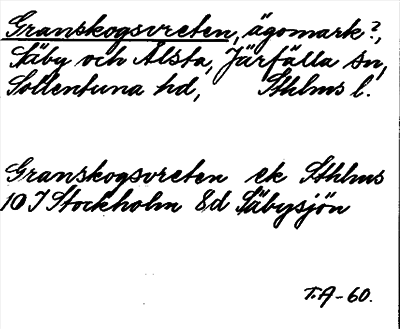 Granskogsvreten, ägomark?,
Säby och Ålsta, Järfälla sn,
Sollentuna hd, Sthlms l.
Granskogsvreten ek Sthlms
10 I Stockholm 8d Säbysjön
T.A-60.